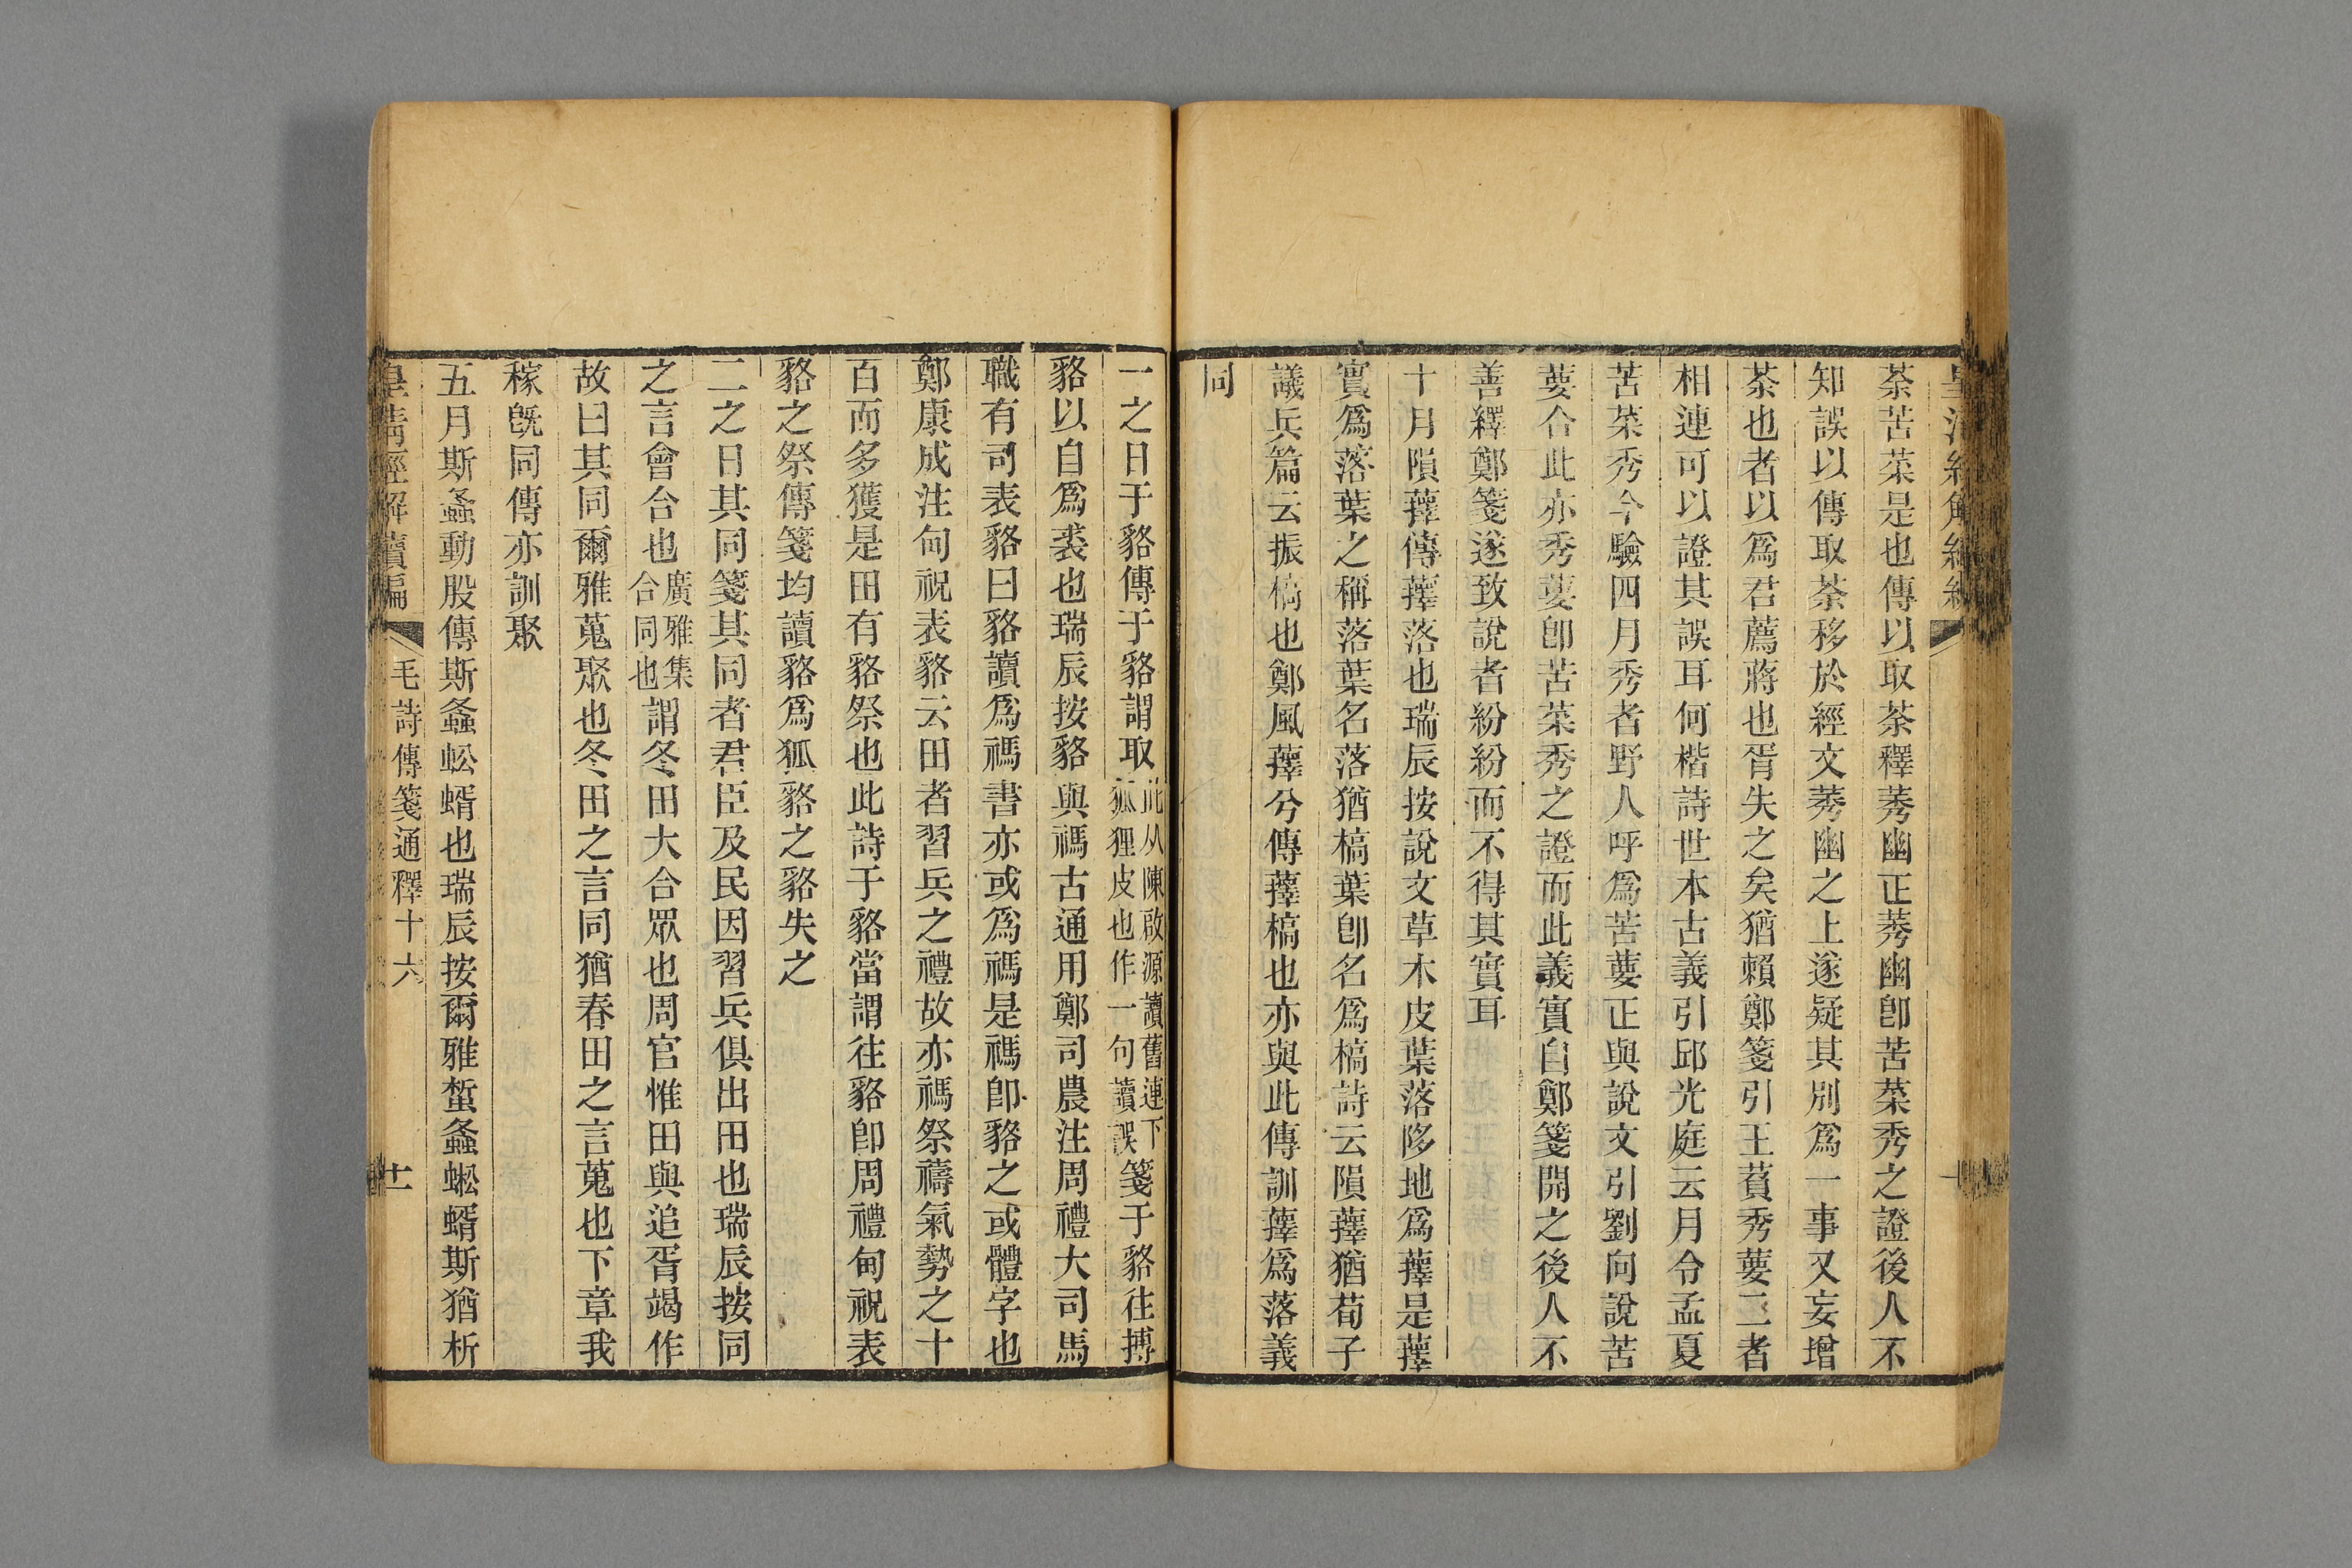 荼苦菜是也傳以取荼釋莠幽正莠幽卽苦菜秀之證後人不
知誤以傳取荼移於經文莠幽之上遂疑其別爲一事又妄增
荼也者以爲君薦蔣也胥失之矣猶賴鄭箋引王萯秀葽二者
相連可以證其誤耳何楷詩世本古義引邱光庭云月令孟夏
苦菜秀今驗四月秀者野人呼爲苦葽正與說文引劉向說苦
葽合此亦秀葽卽苦菜秀之證而此義實自鄭箋開之後人不
善繹鄭箋遂致說者紛紛而不得其實耳
十月隕蘀傳蘀落也瑞辰按說文草木皮葉落陊地爲蘀是蘀
實爲落葉之稱落葉名落猶槁葉卽名爲槁詩云隕蘀猶荀子
議兵篇云振槁也鄭風蘀兮傳蘀槁也亦與此傳訓蘀爲落義
同
一之日于貉傳于貉謂取此从陳啟源讀舊連下狐狸皮也作一句讀誤箋于貉往搏
貉以自爲裘也瑞辰按貉與禡古通用鄭司農注周禮大司馬
職有司表貉曰貉讀爲禡書亦或爲禡是禡卽貉之或體字也
鄭康成注甸祝表貉云田者習兵之禮故亦禡祭禱氣勢之十
百而多獲是田有貉祭也此詩于貉當謂往貉卽周禮甸祝表
貉之祭傳箋均讀貉爲狐貉之貉失之
二之日其同箋其同者君臣及民因習兵俱出田也瑞辰按同
之言會合也廣雅集合同也謂冬田大合眾也周官惟田與追胥竭作
故曰其同爾雅蒐聚也冬田之言同猶春田之言蒐也下章我
稼旣同傳亦訓聚
五月斯螽動股傳斯螽蚣蝑也瑞辰按爾雅蜤螽蜙蝑斯猶析
皇淸經解續編 毛詩傳箋通釋十六 十一